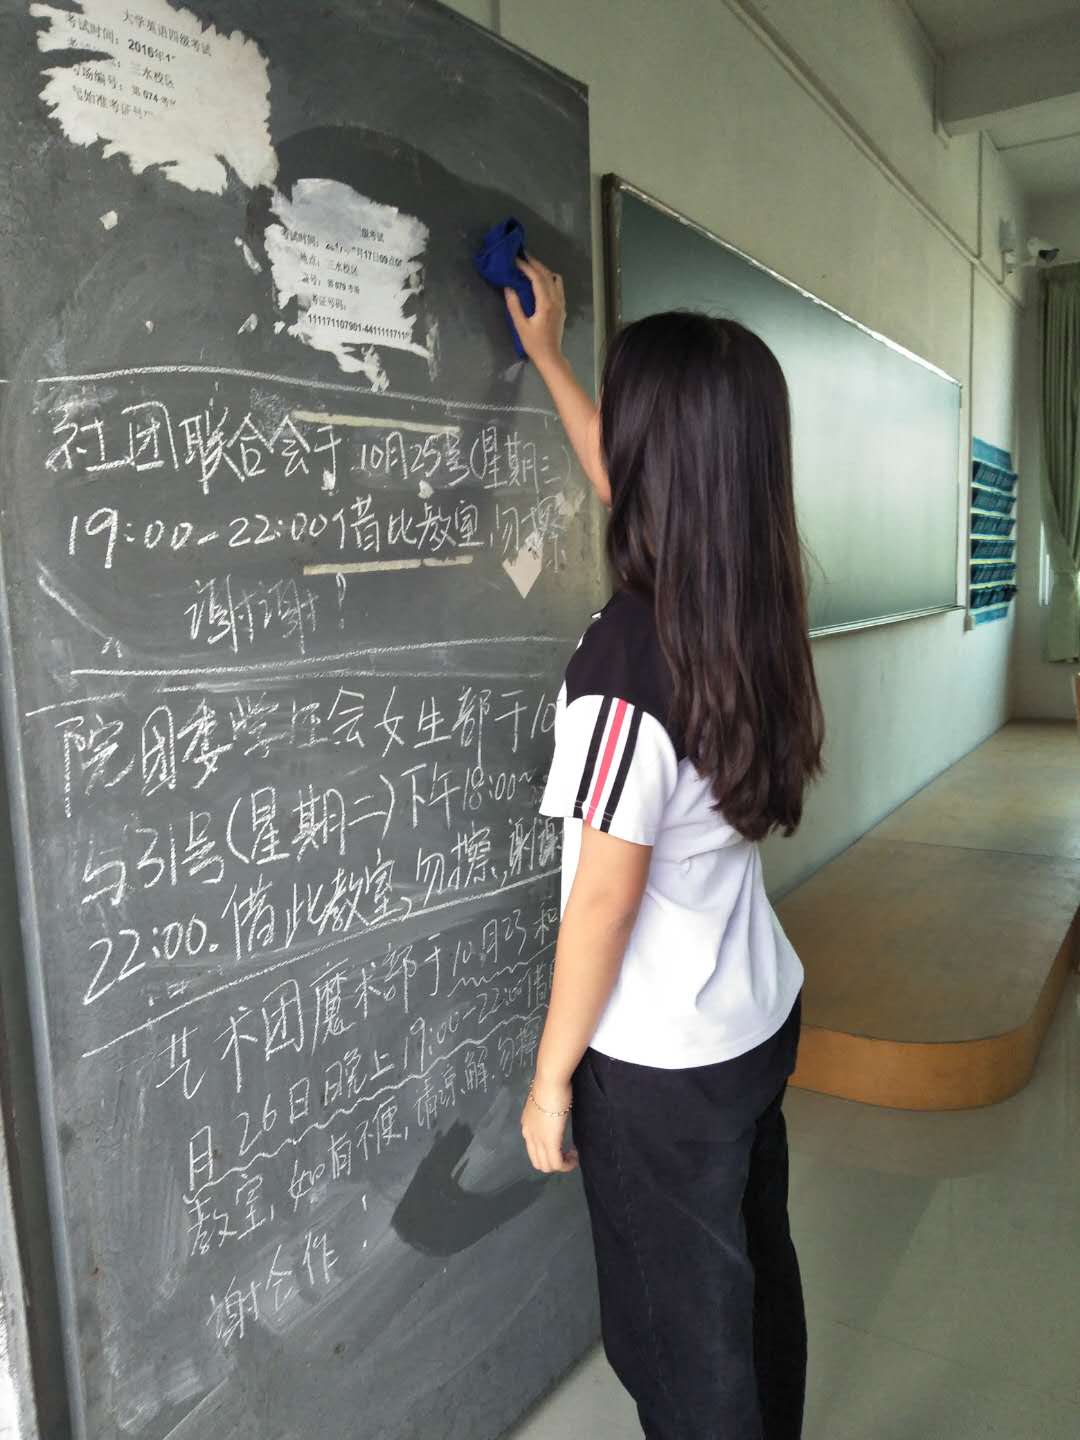 大学英语四级考试
考试时间：2016年1
三水校区
考场编号：第074考
起始准考证号
级考试
考试时间：
月17日09点
地点：三水校区
号：第079考场
考证号码：
111171107901-44111117110
社团联合会于10月25号(星期三)
19:00-22:00借此教室,勿擦
谢谢!
院团委学社会女生部于10
与31号(星期二)下午18:00~
22:00.借此教室,勿擦,谢谢
艺术团魔术部于10月25和
月26日晚上19:00-22:00借
教室,如有不便,请谅解.勿擦
谢合作!